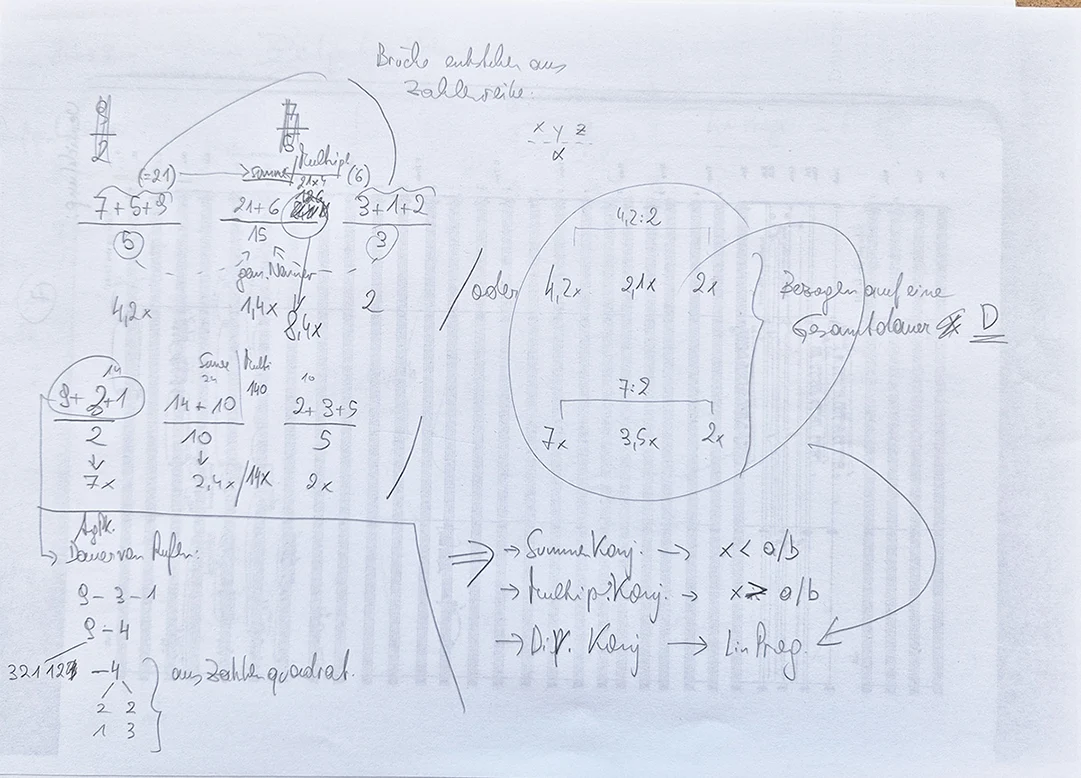 Brüche entstehen aus
Zahlenreihe.
x y z
α
9/2
7/5
(=21)
Summe / Multipl (6)
21x4
126
7+5+9
21+6
3+1+2
5
15
3
gem. Nenner
4,2x
1,4x
8,4x
2
/ oder
4,2:2
4,2x 2,1x 2x
Bezogen auf eine
Gesamtdauer D
7:2
7x 3,5x 2x
14
Summe / Multi
24
140
10
9+3+1
14+10
2+3+5
2
10
5
7x
2,4x/14x
2x
→ Dauer von Rufen:
9-3-1
9-4
-4
2 2
1 3
aus Zahlenquadrat.
→ Summe Konj. → x < a/b
→ Multipl. Konj. → x ≥ a/b
→ Diff. Konj → Lin Prog.